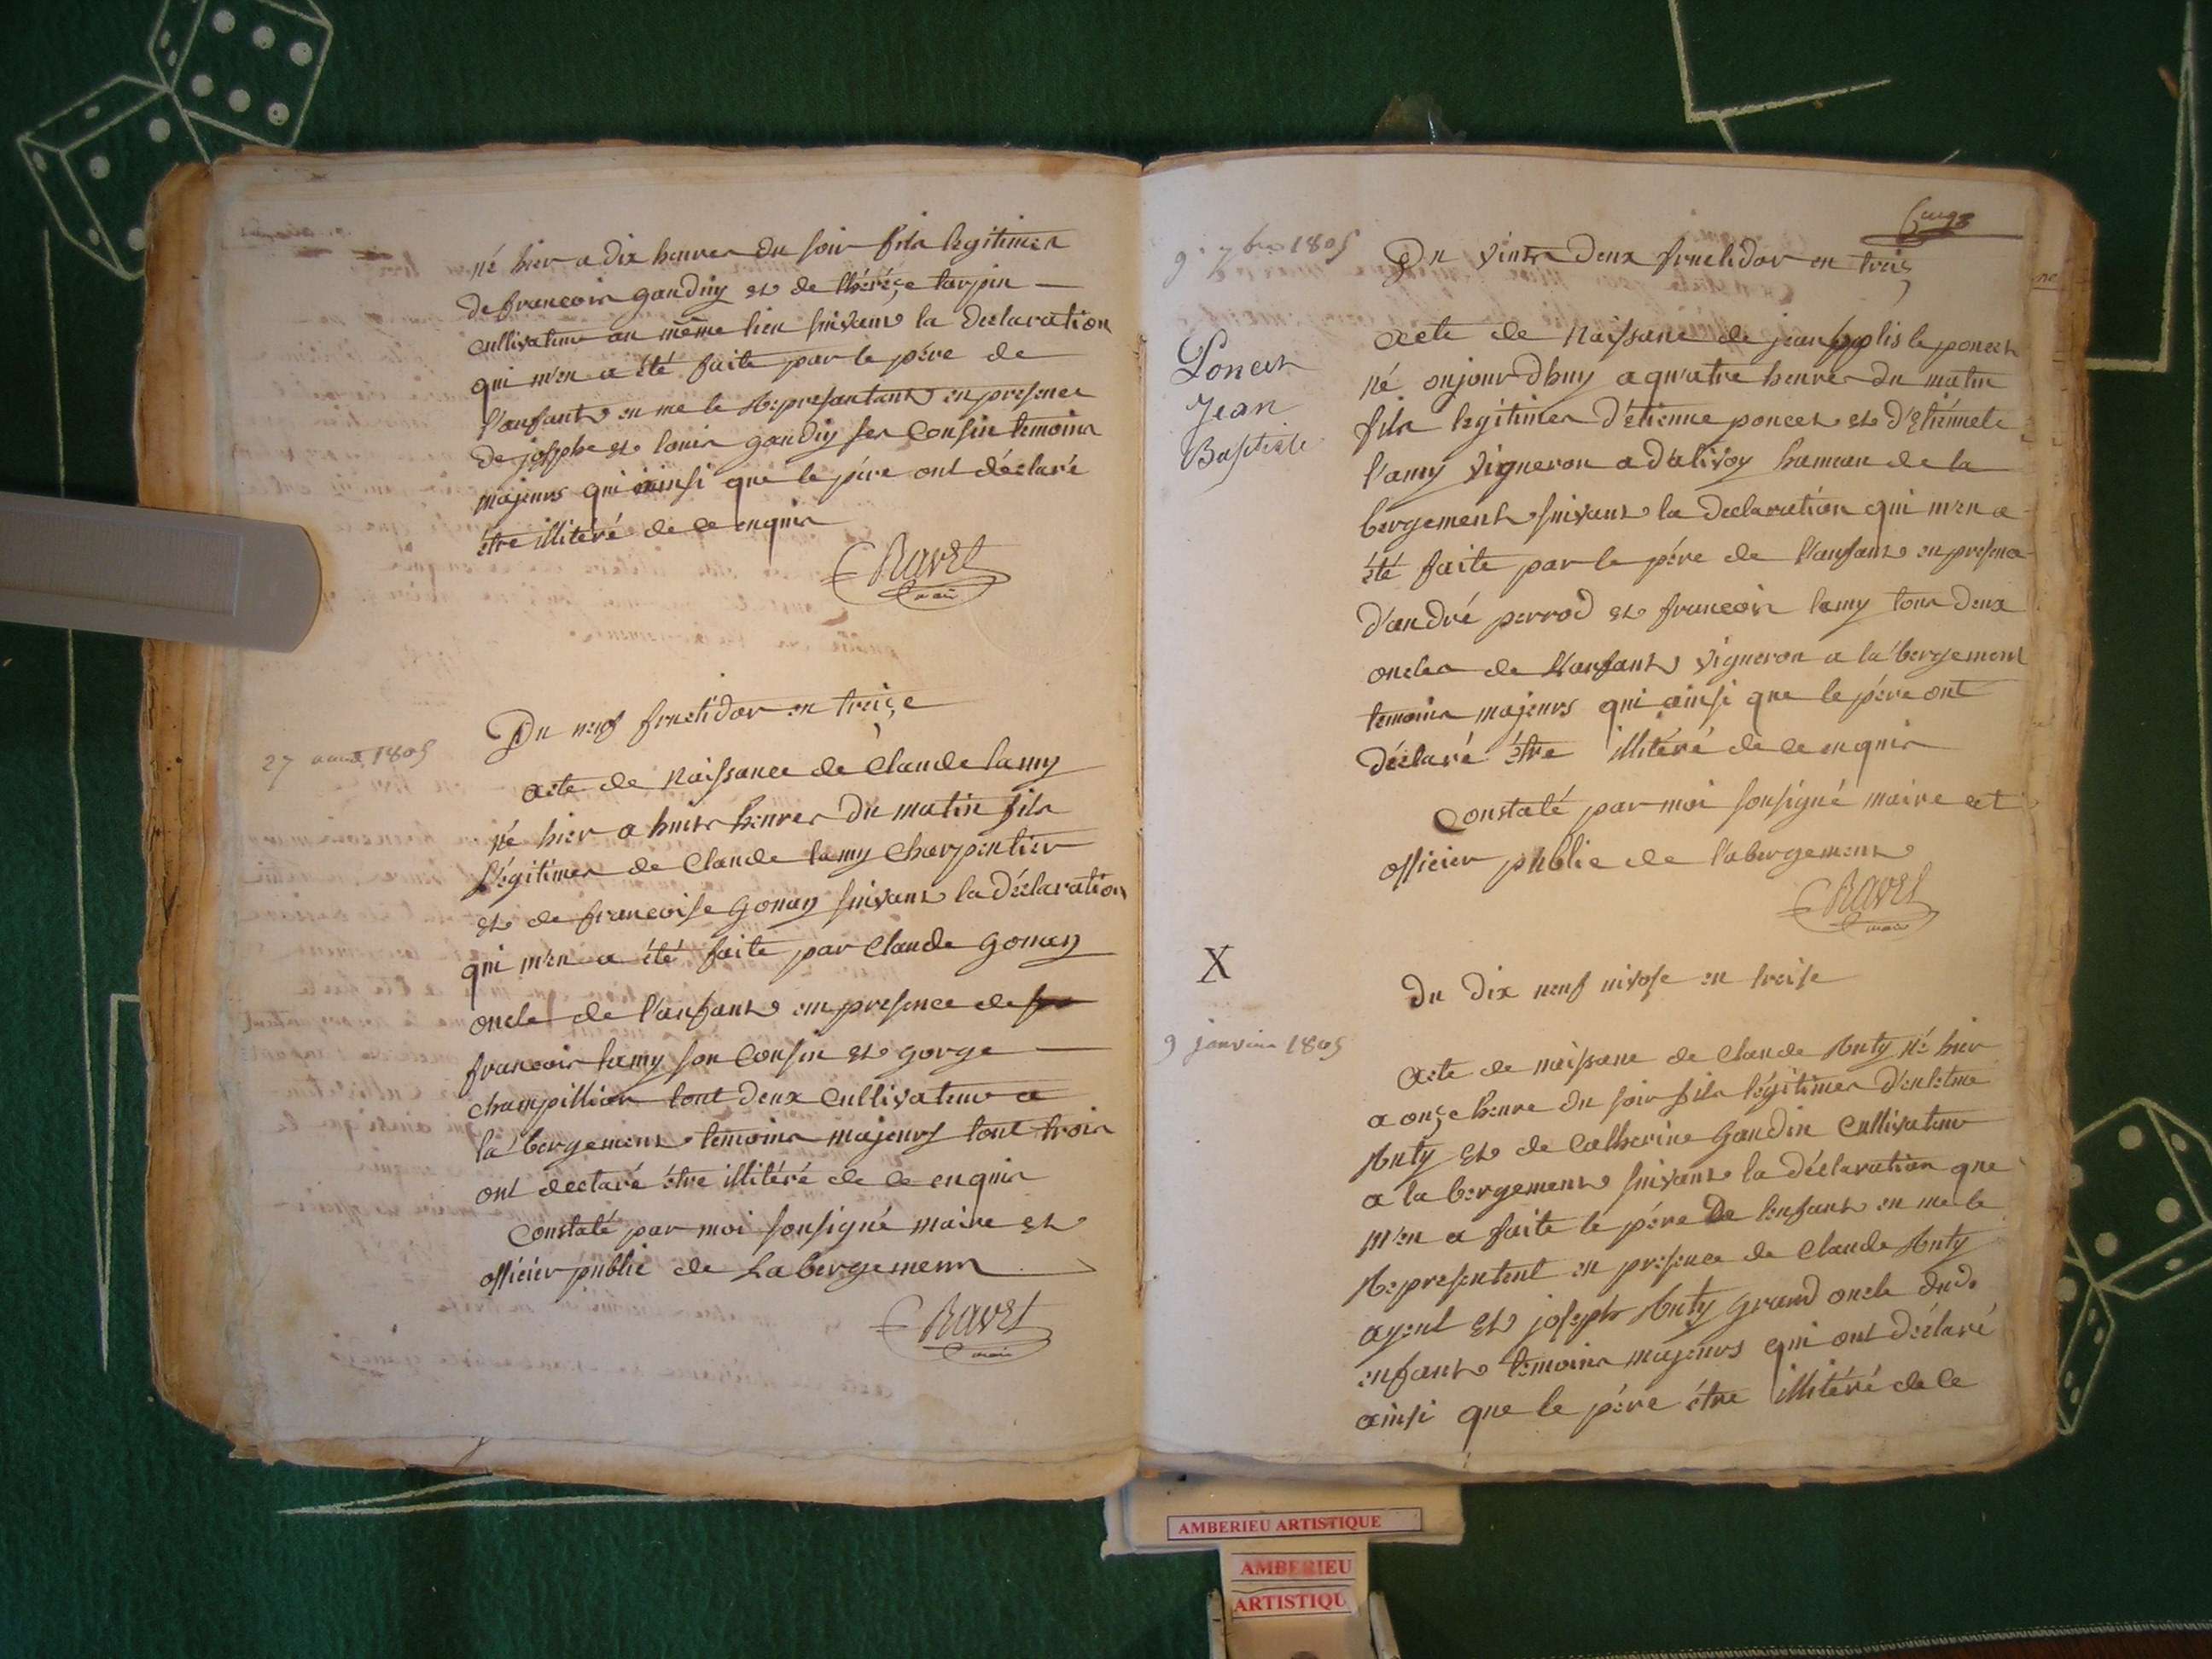 né hier a dix heures du soir fils legitimes
de francois gandiy et de thérése tarpin
cultivateur au même lieu suivant la déclaration
qui m'en a été faite par le pére de
l'anfant en me le Represantant en presence
de josephe et louis gandiy ses cousin temoins
majeurs qui ainsi que le pére ont déclaré
être illitéré de ce enquis
Ravet
maire
27 aout 1805
Du neuf fructidor an treize
acte de Naissance de Claude lamy
né hier a huit heures du matin fils
légitimes de Claude lamy Charpentier
et de francoise gonay suivant la déclaration
qui m'en a été faite par Claude gonay
oncle de l'anfant en presence de
francois lamy son Cousin et gorge
champillion tout deux Cultivateur a
la'bergement temoins majeurs tout trois
ont declaré être illitéré de ce enquis
Constaté par moi sousigné maire et
officier public de Labergement
Ravet
maire
9. 7bre 1805
Du vint deux fructidor an treiz
Poncet
Jean
Baptiste
acte de Naissance de jean le poncet
né oujourdhuy a quatre heures du matin
fils legitimes d'étienne poncet et d'Etiénnete
l'amy vigneron a d'alivoy hameau de la
bergement suivant la declaration qui m'en a
été faite par le pére de l'anfant en presence
d'andré perrod et francois lamy tous deux
oncles de l'anfant vigneron a la'bergement
temoins majeurs qui ainsi que le pére ont
déclaré être illitéré de ce enquis
Constaté par moi sousigné maire et
officier public de l'abergement
Ravet
maire
X
Du dix neuf nivose an treise
9 janvier 1805
acte de naissance de Claude Ruty né hier
a onze heure du soir fils légitimes d'entelme
Ruty et de Catherine Gandin Cultivateur
a la bergement suivant la déclaration que
m'en a faite le pére De l'enfant en me le
Represantent en presence de Claude Ruty
ayeul et joseph Ruty grand oncle dud.
enfant temoins majeurs qui ont déclaré
ainsi que le pére être illitéré de ce
AMBERIEU ARTISTIQUE
AMBERIEU
ARTISTIQU